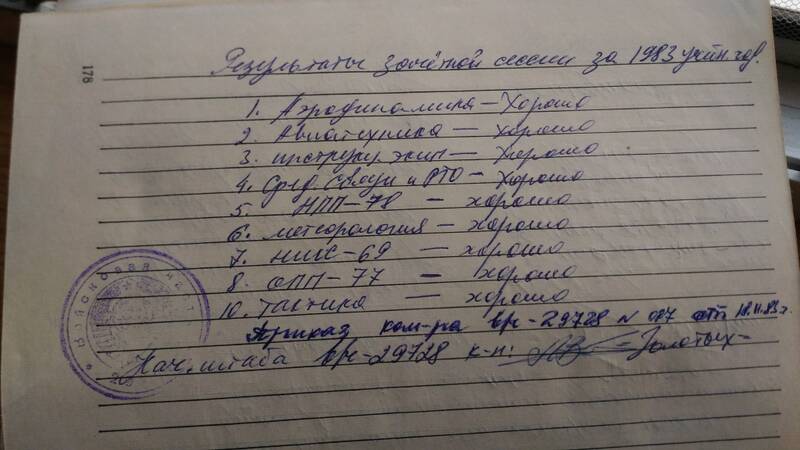 178
Результаты зачётной сессии за 1983 учебн. год.
1. Аэродинамика — Хорошо
2. Авиатехника — хорошо
3. инструкц. экип — Хорошо
4. Сред. связи и РТО — Хорошо
5. НПП-78 — хорошо
6. метеорология — хорошо
7. НИАС-69 — хорошо
8. ОПП-77 — хорошо
10. Тактика — хорошо
Приказ ком-ра в/ч-29728 N 087 от 18.11.83 г.
Нач. штаба в/ч-29728 к-н: Золотых
Войсковая часть